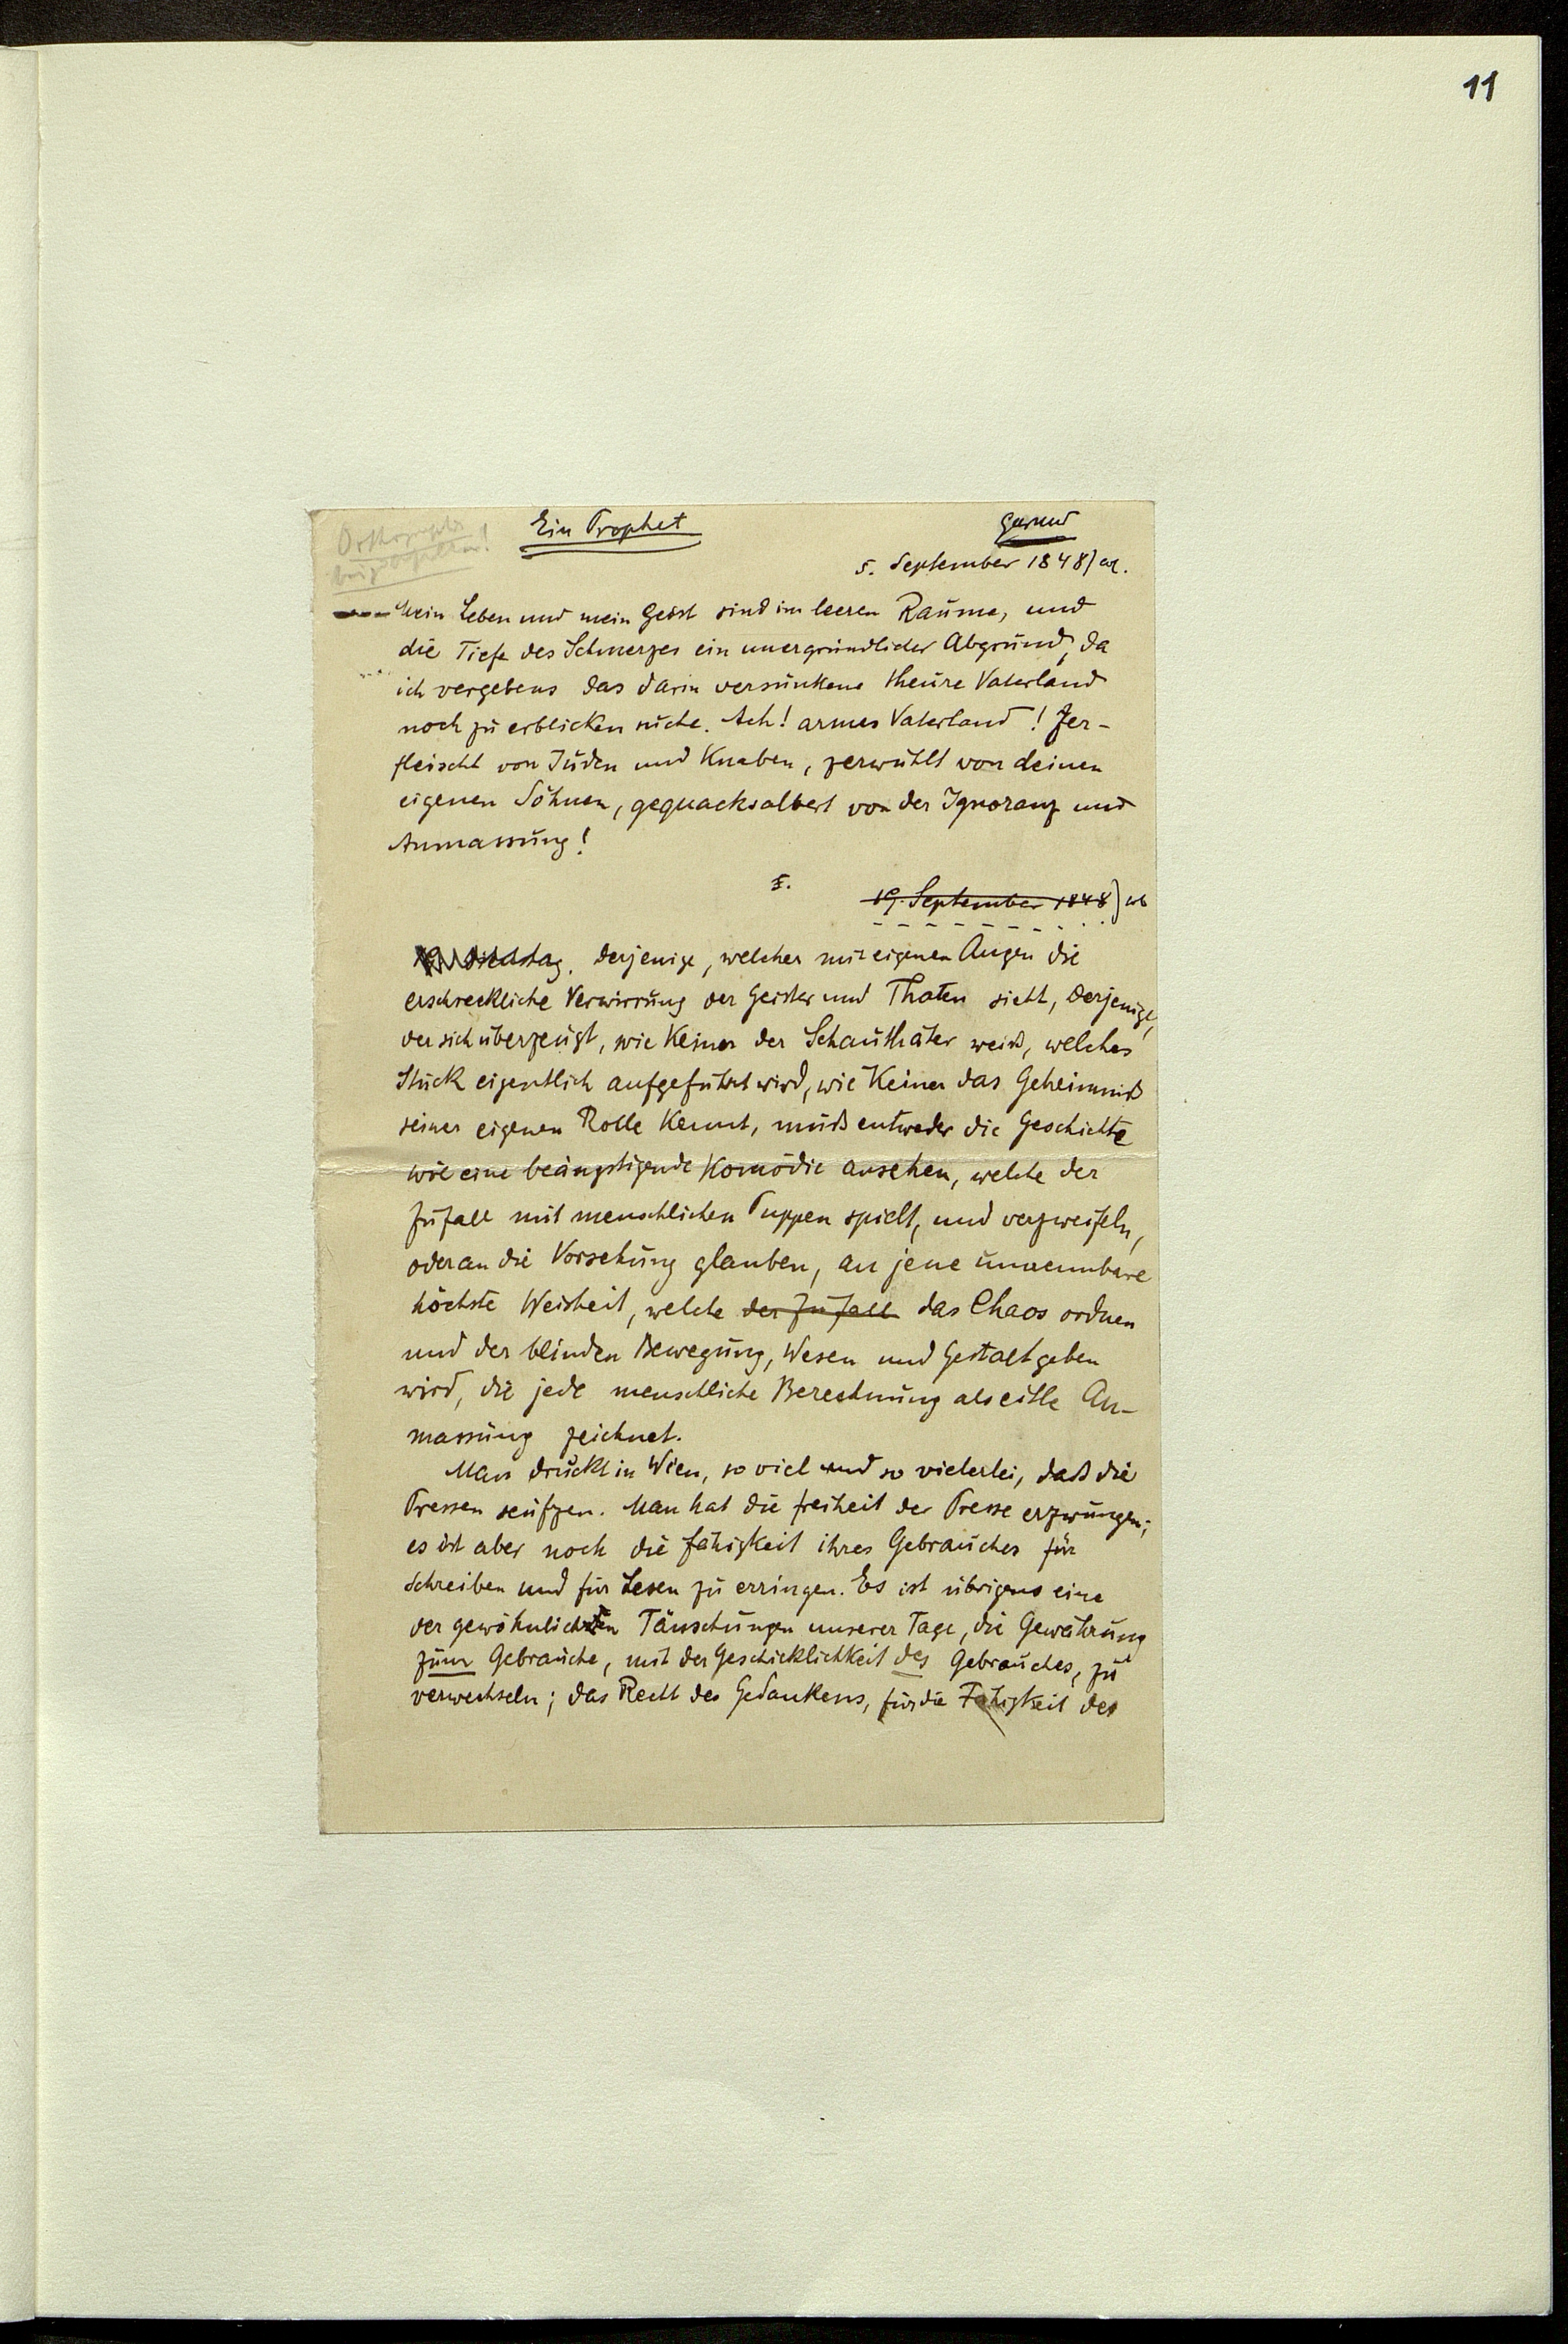 11
Orthographie
beizubehalten!
Ein Prophet
5. September 1848)
– – – Mein Leben und mein Geist sind im leeren Raume, und
die Tiefe des Schmerzes ein unergründlicher Abgrund, da
ich vergebens das darin versunkene theure Vaterland
noch zu erblicken suche. Ach! armes Vaterland! Zer-
fleischt von Juden und Knaben, zerwühlt von deinen
eigenen Söhnen, gequacksalbert von der Ignoranz und
Anmassung!
I.
19. September 1848)
Dienstag. Derjenige, welcher mit eigenen Augen die
erschreckliche Verwirrung der Geister und Thaten sieht, derjenige,
der sich überzeugt, wie Keiner der Schauthäter weiß, welches
Stück eigentlich aufgeführt wird, wie Keiner das Geheimniß
seiner eigenen Rolle kennt, muß entweder die Geschichte
wie eine beängstigende Komödie ansehen, welche der
Zufall mit menschlichen Puppen spielt, und verzweifeln,
oder an die Vorsehung glauben, an jene unnennbare
höchste Weisheit, welche der Zufall das Chaos ordnen
und der blinden Bewegung, Wesen und Gestalt geben
wird, die jede menschliche Berechnung als eitle An-
massung zeichnet.
Man druckt in Wien, so viel und so vielerlei, daß die
Pressen seufzen. Man hat die Freiheit der Presse erzwungen;
es ist aber noch die Fähigkeit ihres Gebrauches für
Schreiben und für Lesen zu erringen. Es ist übrigens eine
der gewöhnlichsten Täuschungen unserer Tage, die Gewährung
zum Gebrauche, mit der Geschicklichkeit des Gebrauches, zu
verwechseln; das Recht des Gedankens, für die Fähigkeit des